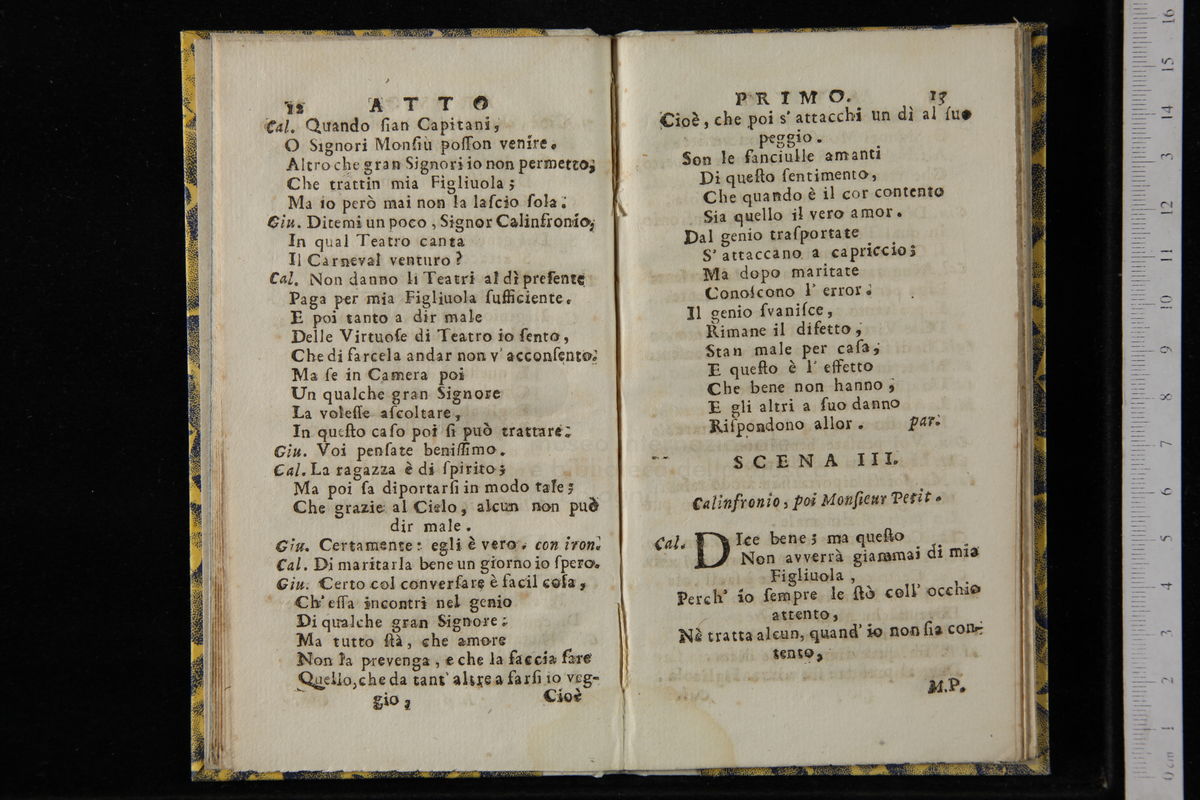 12 ATTO
Cal. Quando ſian Capitani,
O Signori Monſiù poſſon venire.
Altro che gran Signori io non permetto;
Che trattin mia Figliuola;
Ma io però mai non la laſcio ſola.
Giu. Ditemi un poco, Signor Calinfronio,
In qual Teatro canta
Il Carneval venturo?
Cal. Non danno li Teatri al dì preſente
Paga per mia Figliuola ſufficiente.
E poi tanto a dir male
Delle Virtuoſe di Teatro io ſento,
Che di farcela andar non v' acconſento.
Ma ſe in Camera poi
Un qualche gran Signore
La voleſſe aſcoltare,
In queſto caſo poi ſi può trattare.
Giu. Voi penſate beniſſimo.
Cal. La ragazza è di ſpirito;
Ma poi ſa diportarſi in modo tale;
Che grazie al Cielo, alcun non può
dir male.
Giu. Certamente: egli è vero. con iron.
Cal. Di maritarla bene un giorno io ſpero.
Giu. Certo col converſare è facil coſa,
Ch' eſſa incontri nel genio
Di qualche gran Signore:
Ma tutto ſtà, che amore
Non la prevenga, e che la faccia fare
Quello, che da tant' altre a farſi io veg-
gio, Cioè
PRIMO. 13
Cioè, che poi s' attacchi un dì al ſuo
peggio.
Son le fanciulle amanti
Di queſto ſentimento,
Che quando è il cor contento
Sia quello il vero amor.
Dal genio traſportate
S' attaccano a capriccio;
Ma dopo maritate
Conoſcono l' error.
Il genio ſvaniſce,
Rimane il difetto,
Stan male per caſa,
E queſto è l' effetto
Che bene non hanno;
E gli altri a ſuo danno
Riſpondono allor. par.
SCENA III.
Calinfronio, poi Monſieur Petit.
Cal. DIce bene; ma queſto
Non avverrà giammai di mia
Figliuola,
Perch' io ſempre le ſtò coll' occhio
attento,
Nè tratta alcun, quand' io non ſia con-
tento,
M.P.